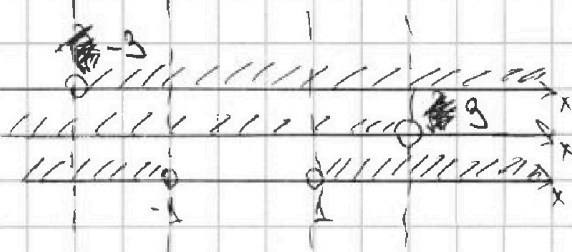 -3
x
9
x
-1 1 x